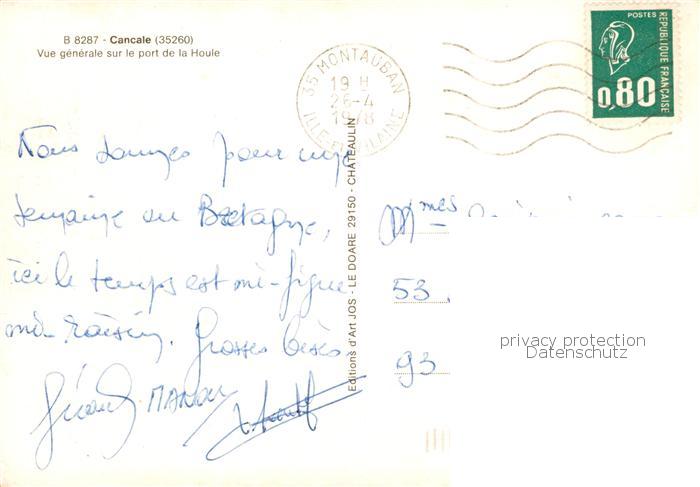 B 8287 - Cancale (35260)
Vue générale sur le port de la Houle
35 MONTAUBAN
19 H
26-4
1978
ILLE-ET-VILAINE
POSTES
REPUBLIQUE FRANÇAISE
0,80
Nous sommes pour une
semaine en Bretagne,
ici le temps est mi-figue
mi-raisin. Grosses bises
Editions d'Art JOS - LE DOARE 29150 - CHATEAULIN
Mmes
53
93
privacy protection
Datenschutz